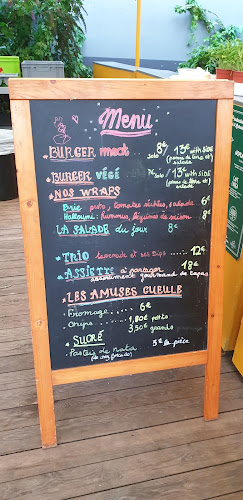 Menu
BURGER meat 8€ solo / 13€ with SIDE
(pomme de terre et salade)
BURGER végé 7€ solo / 13€ with SIDE
(pomme de terre et salade)
NOS WRAPS
Brie, pesto, tomates séchées, salade 6€
Halloumi, Hummus, légumes de saison 8€
LA SALADE du jour 8€
TRIO et ses Dips 12€
ASSIETTE à partager 18€
assortiment gourmand de tapas
LES AMUSES GUEULE
. Fromage 6€
. Chips 1,80€ petits
3,50€ grands
SUCRÉ
. Pasteis de nata 3€ la pièce